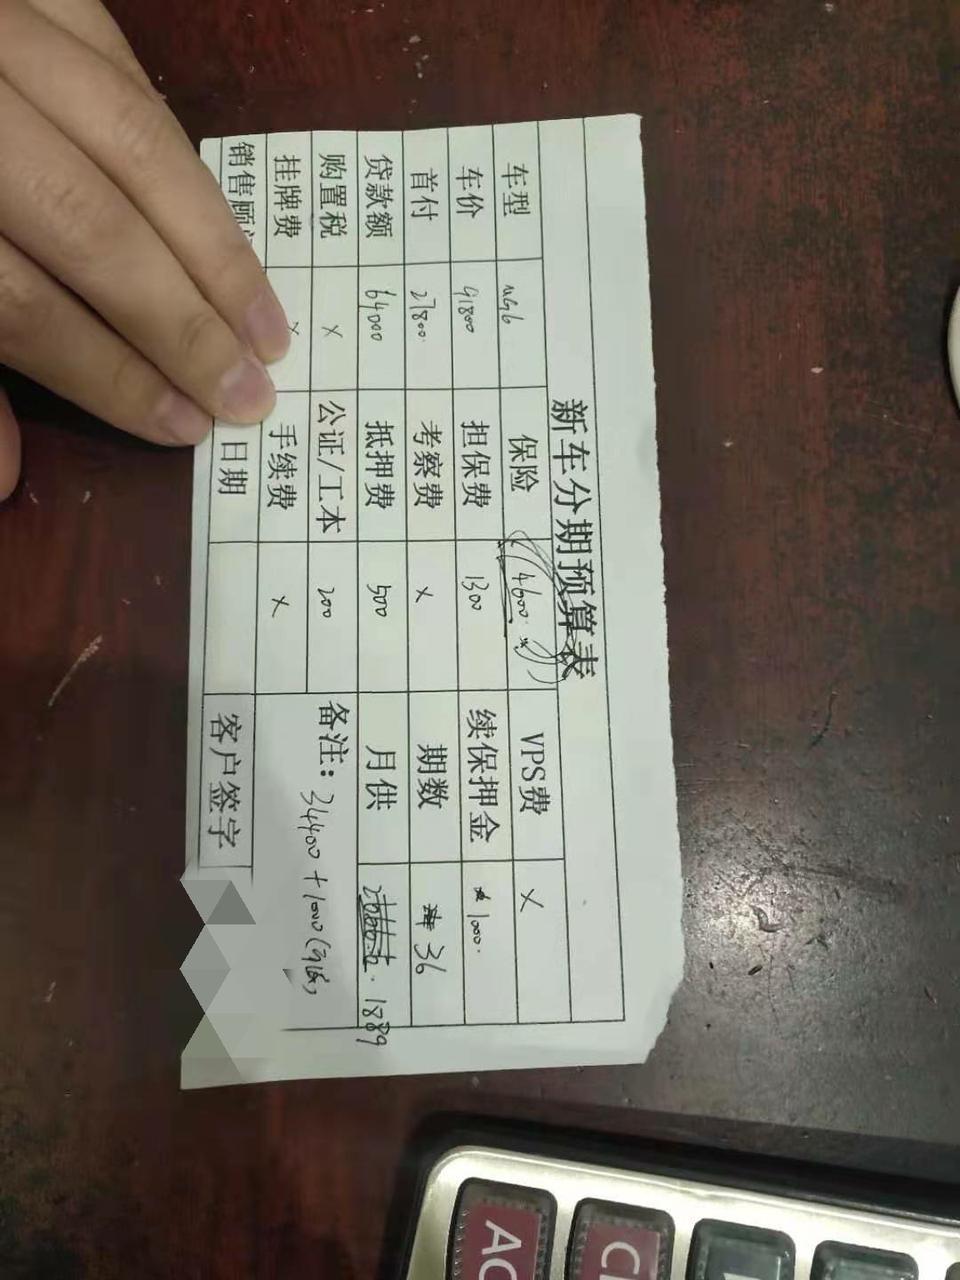 新车分期预算表
车型 MG6 保险 4600. VPS费 ×
车价 91800 担保费 1300 续保押金 1000.
首付 27800. 考察费 × 期数 36
贷款额 64000 抵押费 500 月供 1889
购置税 × 公证/工本 200 备注: 34400+1000(可退)
挂牌费 × 手续费 ×
销售顾 日期 客户签字
AC